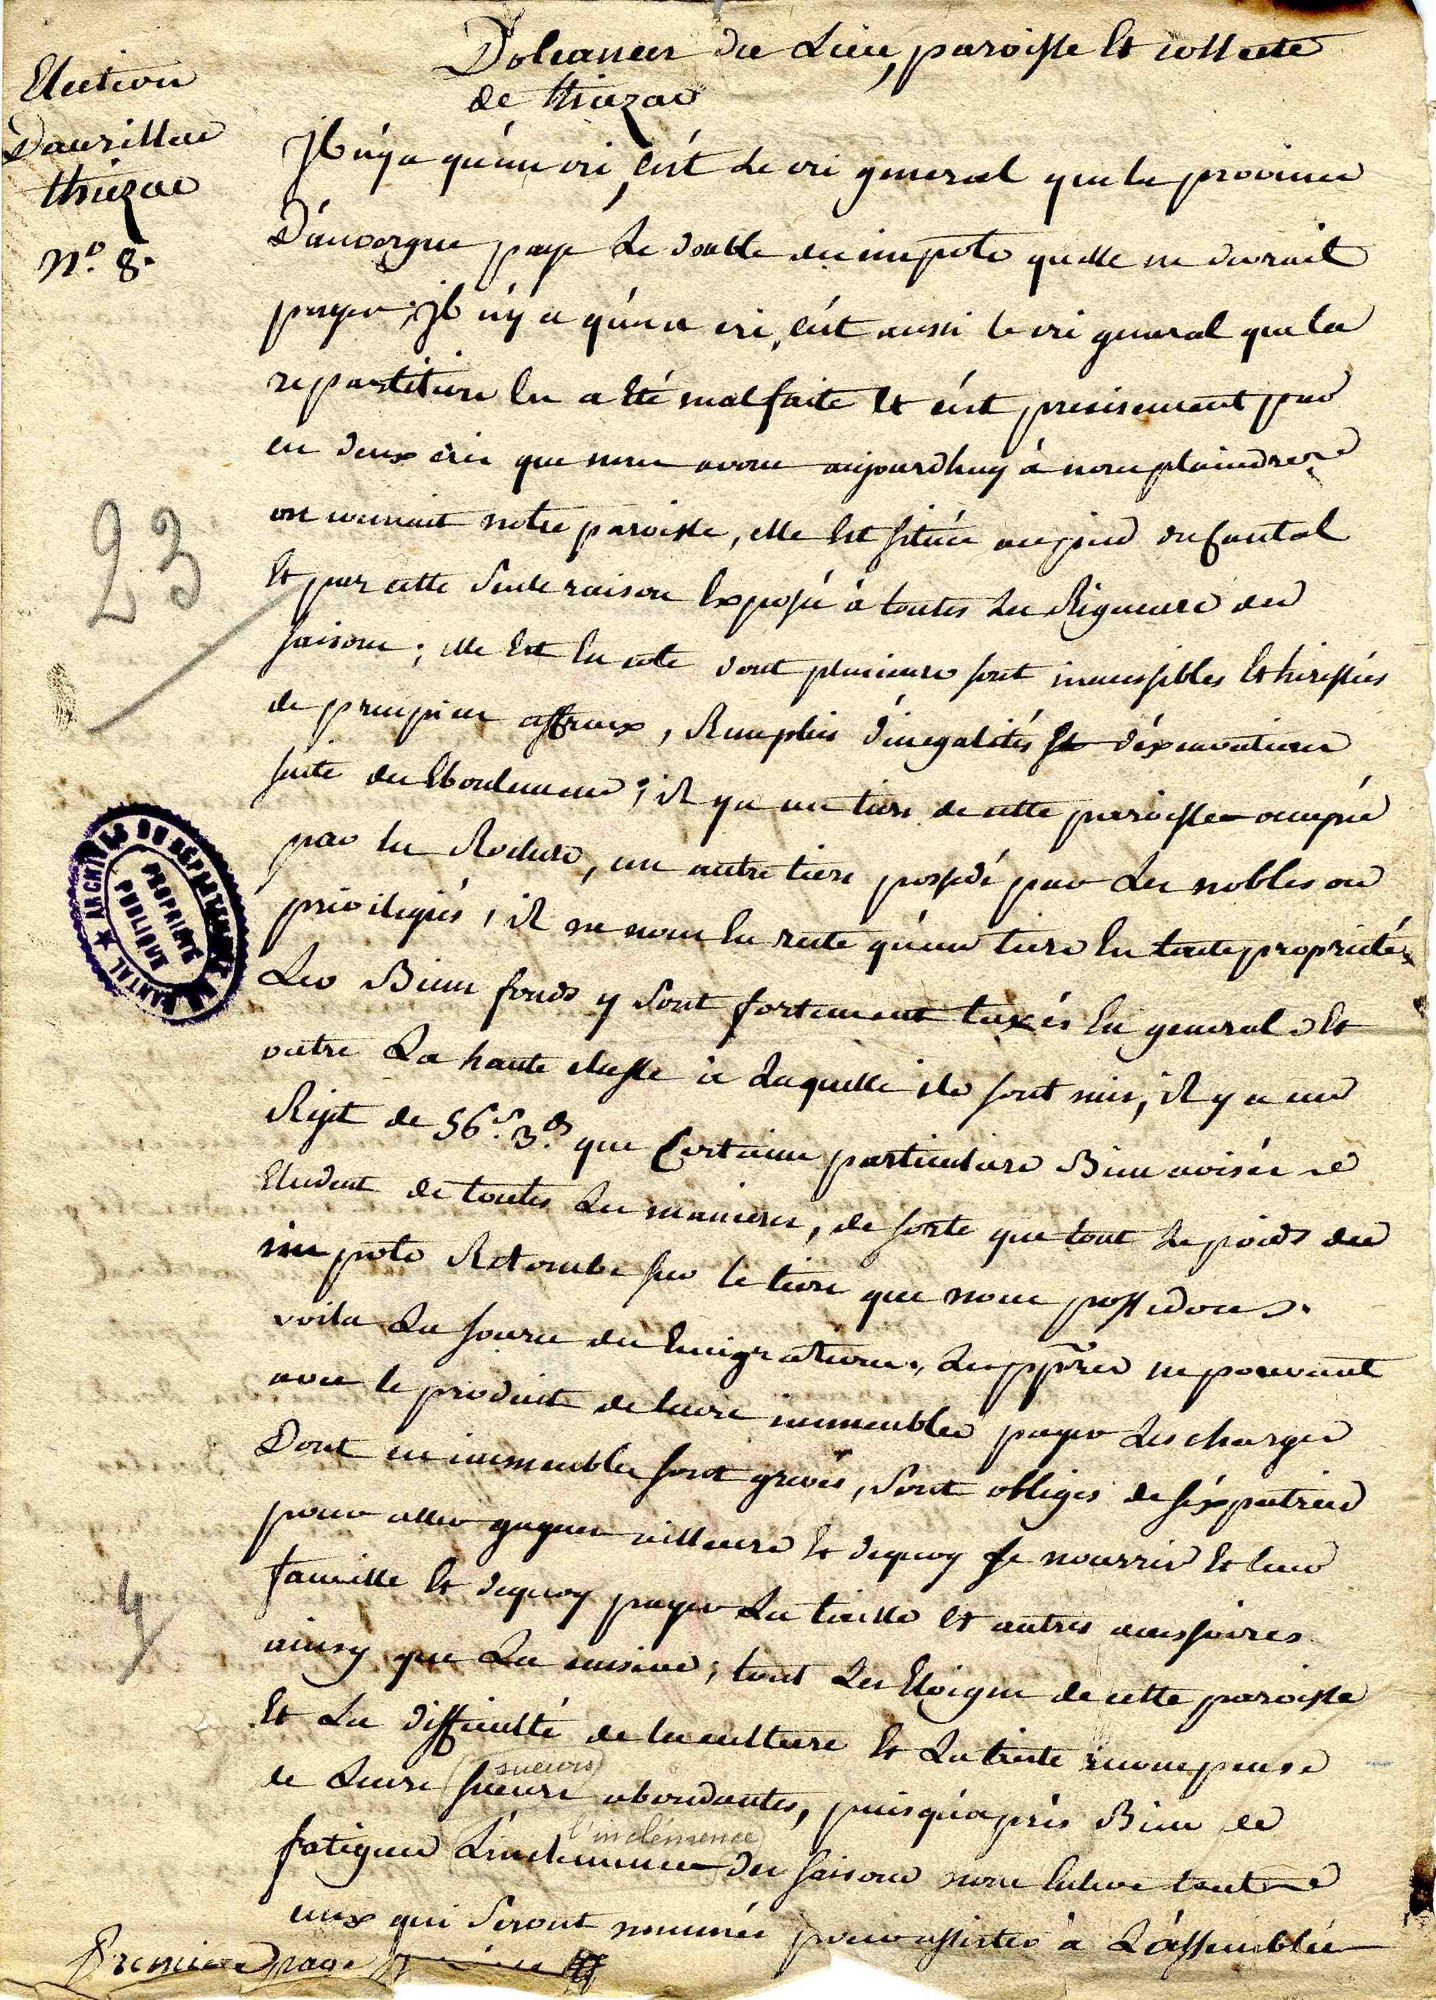 Doleances du Lieu, paroisse Et collecte
de thiezac
Election
Daurillac
thiezac
N.o 8.
Jl n'ya qu'un cri, c'est Le cri general que la province
D'auvergne paye Le double des impots quelle ne devrait
payer; Jl n'y a qu'un cri, c'est aussi le cri general que la
repartition En a Eté mal faite Et c'est precisement par
ces deux cris que nous avons aujourdhuy à nous plaindre
on connait notre paroisse, elle Est située au pied du Cantal
Et par cette Seule raison Exposée à toutes Les Rigueurs des
saisons; elle Est En cote dont plusieurs sont inaccessibles Et hérissées
de precipices affreux, Remplies d'inegalités Et d'éxcavations
suite des Eboulemens; il y a un tiers de cette paroisse occupée
par les Rochers, un autre tiers possedé par Les nobles ou
privilegiés, il ne nous En reste qu'un tiers En toute proprieté
Les Biens fonds y Sont fortement taxés En general Et
outre La haute classe à Laquelle ils sont mis, il y a un
Rejet de 56.s 3.d que Certains particuliers Bien avisés
Eludent de toutes Les manieres, de sorte que tout Le poids des
impots Retombe sur le tiers que nous possedons.
voila La source des Emigrations, Les pp.res ne pouvant
avec le produit de leurs immeubles payer Les charges
Dont ces immeubles sont grevés, Sont obligés de s'éxpatrier
pour aller gagner ailleurs Et dequoy se nourrir Et leur
famille Et dequoy payer La taille Et autres accessoires
ainsy que La censive; tout Les Eloigne de cette paroisse
Et La difficulté de la culture Et La triste recompense
sueurs
de Leurs sueurs abondantes, puisqu'après Bien de
l'inclémence
fatigues L'inclemence des saisons nous Enleve tout
ceux qui Seront nommés pour assister à L'assemblée
Premiere page
23
4
ARCHIVES DU DÉPARTEMENT DU CANTAL
PROPRIÉTÉ
PUBLIQUE